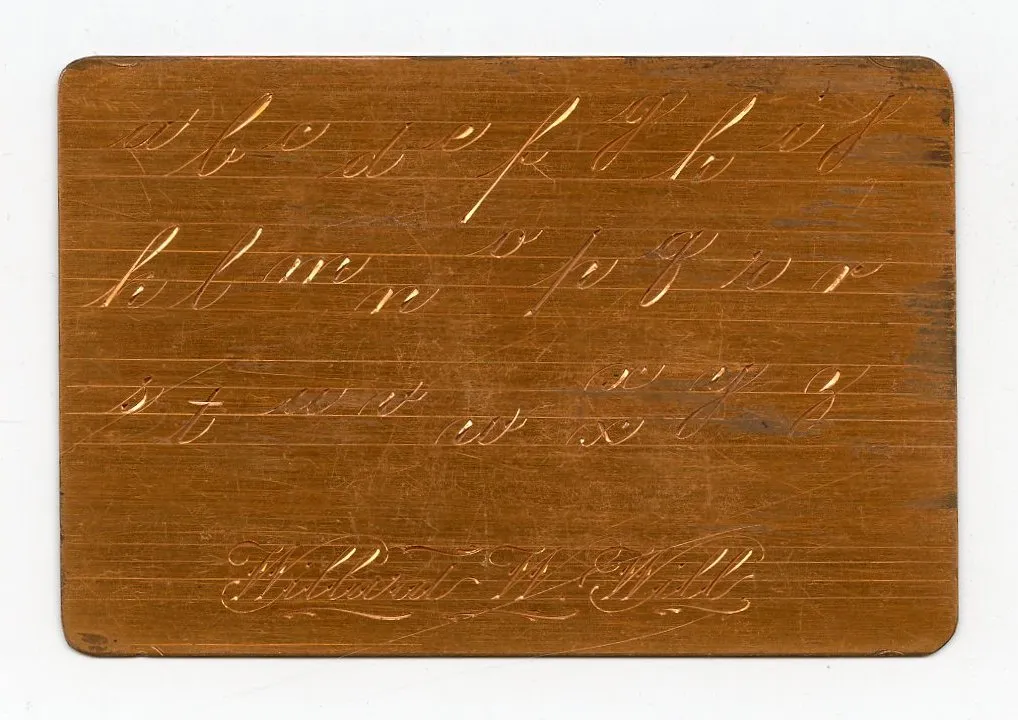 a b c d e f g h i j
k l m n o p q r r
s t u v w x x y z
Willard W. Will